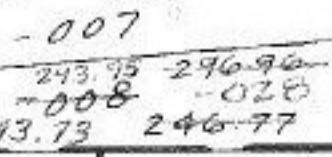 -007
243.95 -296.96
-008 -028
43.73 246.77